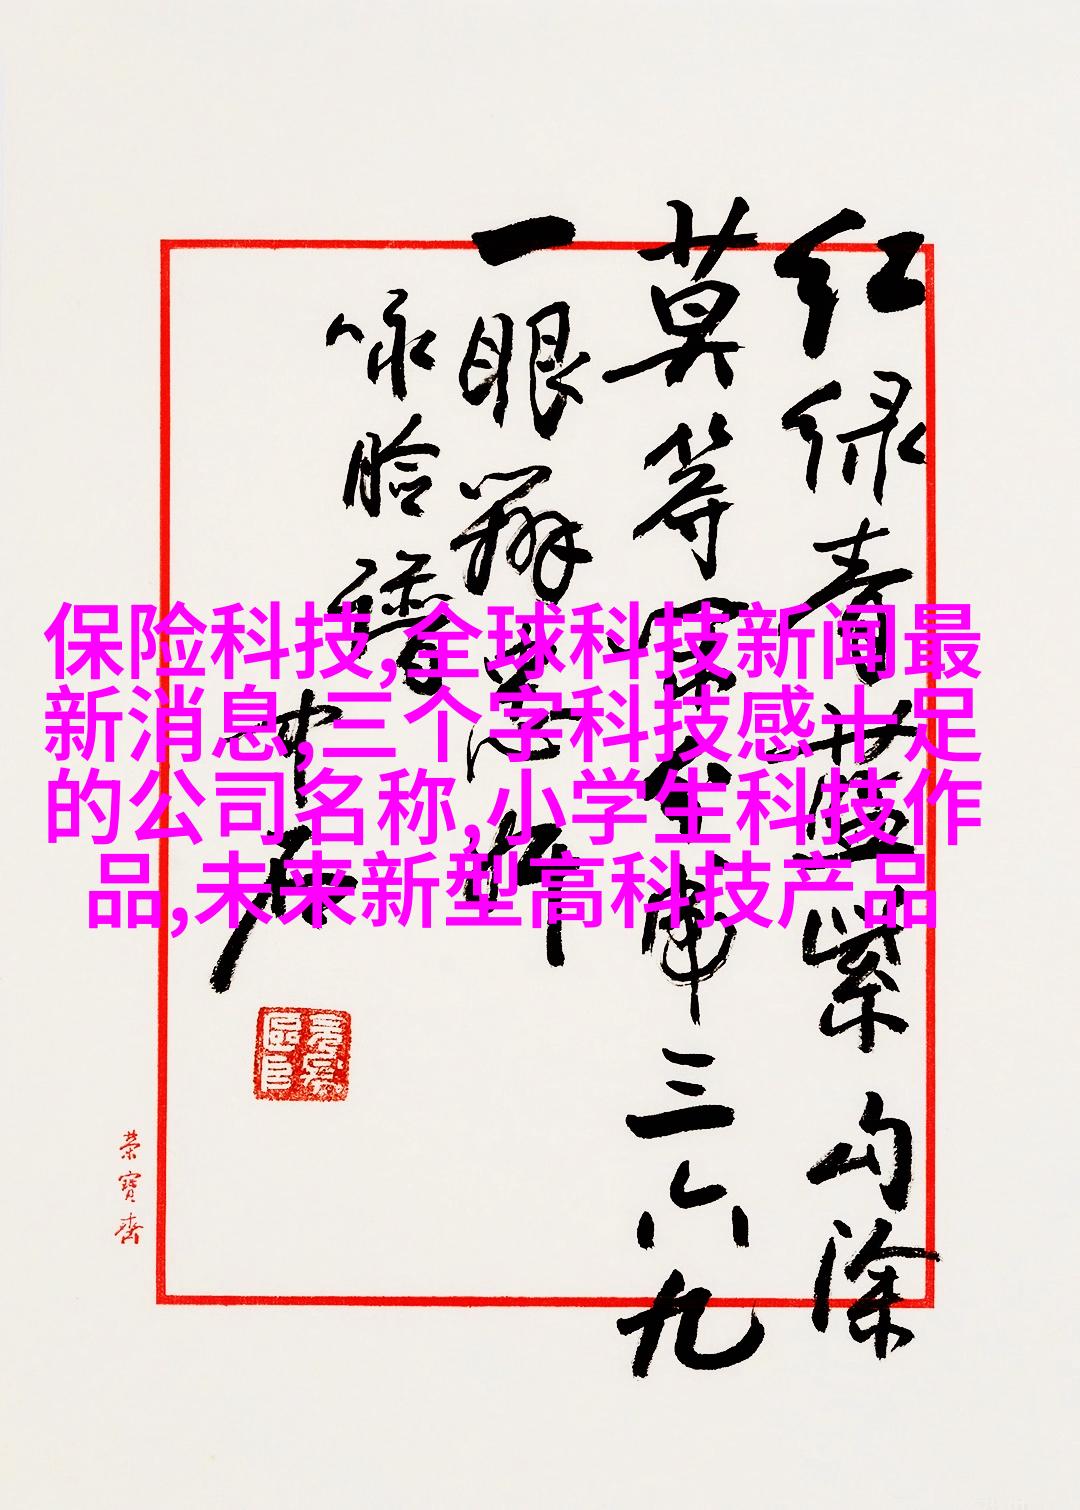 保险科技,全球科技新闻最
新消息,三个字科技感十足
的公司名称,小学生科技作
品,未来新型高科技产品
红绿青蓝紫勾涂
莫等 三六九
一眼辨忠奸
咏脸谱
中石
荣寶齋